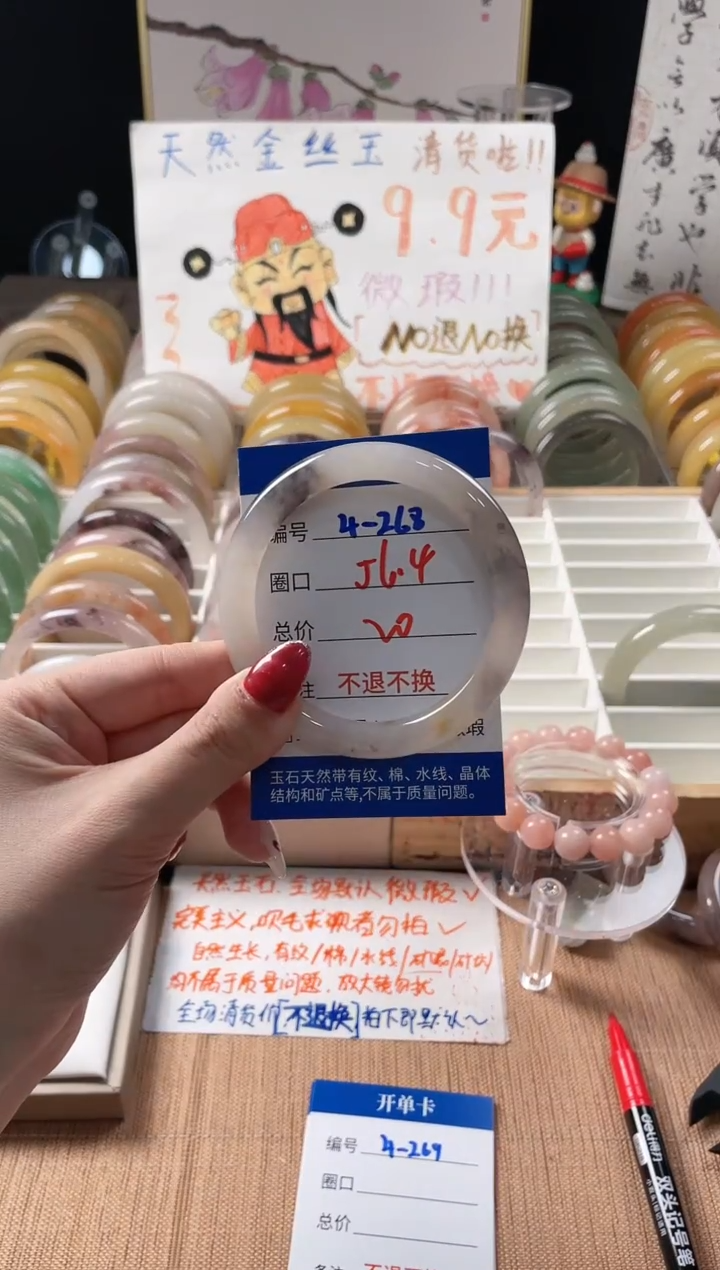 天然金丝玉 清货啦!!
9.9元
微瑕!!!
NO退NO换
编号 4-268
圈口 56.4
总价 20
注 不退不换
瑕
玉石天然带有纹、棉、水线、晶体
结构和矿点等,不属于质量问题。
天然玉石,全场默认微瑕✓
完美主义,吹毛求疵者勿拍✓
自然生长,有纹/棉/水线/
均不属于质量问题,放大镜勿扰
全场清货价[不退换]拍下即默认~
开单卡
编号 4-269
圈口
总价
deli 双头记号笔